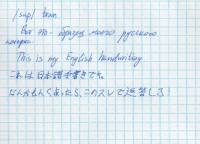 /sup/ team
Вот это - образец моего русского
почерка.
This is my English handwriting
これは日本語手書きです。
なんかもんくあったら、このスレで返答しろ!